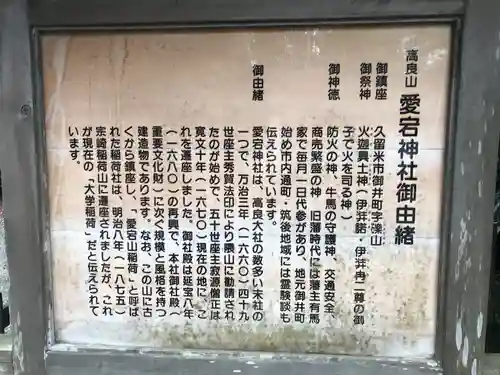 高良山 愛宕神社御由緒
御鎮座 久留米市御井町字礫山
御祭神 火迦具土神(伊弉諾・伊弉冉二尊の御
子で火を司る神)
御神徳 防火の神、牛馬の守護神 交通安全、
商売繁盛の神 旧藩時代には藩主有馬
家で毎月一日代参があり、地元御井町
始め市内通町・筑後地域には霊験談も
伝えられています。
御由緒 愛宕神社は、高良大社の数多い末社の
一つで、万治三年(一六六〇)四十九
世座主秀賀法印により礫山に勧請され
たのが始めで、五十世座主寂源僧正は
寛文十年(一六七〇)現在の地にご
れを遷座しました。御社殿は延宝八年
(一六八〇)の再興で、本社御社殿(
重要文化財)に次ぐ規模と風格を持つ
建造物であります。なお、この山に古
くから鎮座し、「愛宕山稲荷」と呼ば
れた稲荷社は、明治八年(一八七五)
宗崎稲荷山に遷座されましたが、これ
が現在の「大学稲荷」だと伝えられて
います。